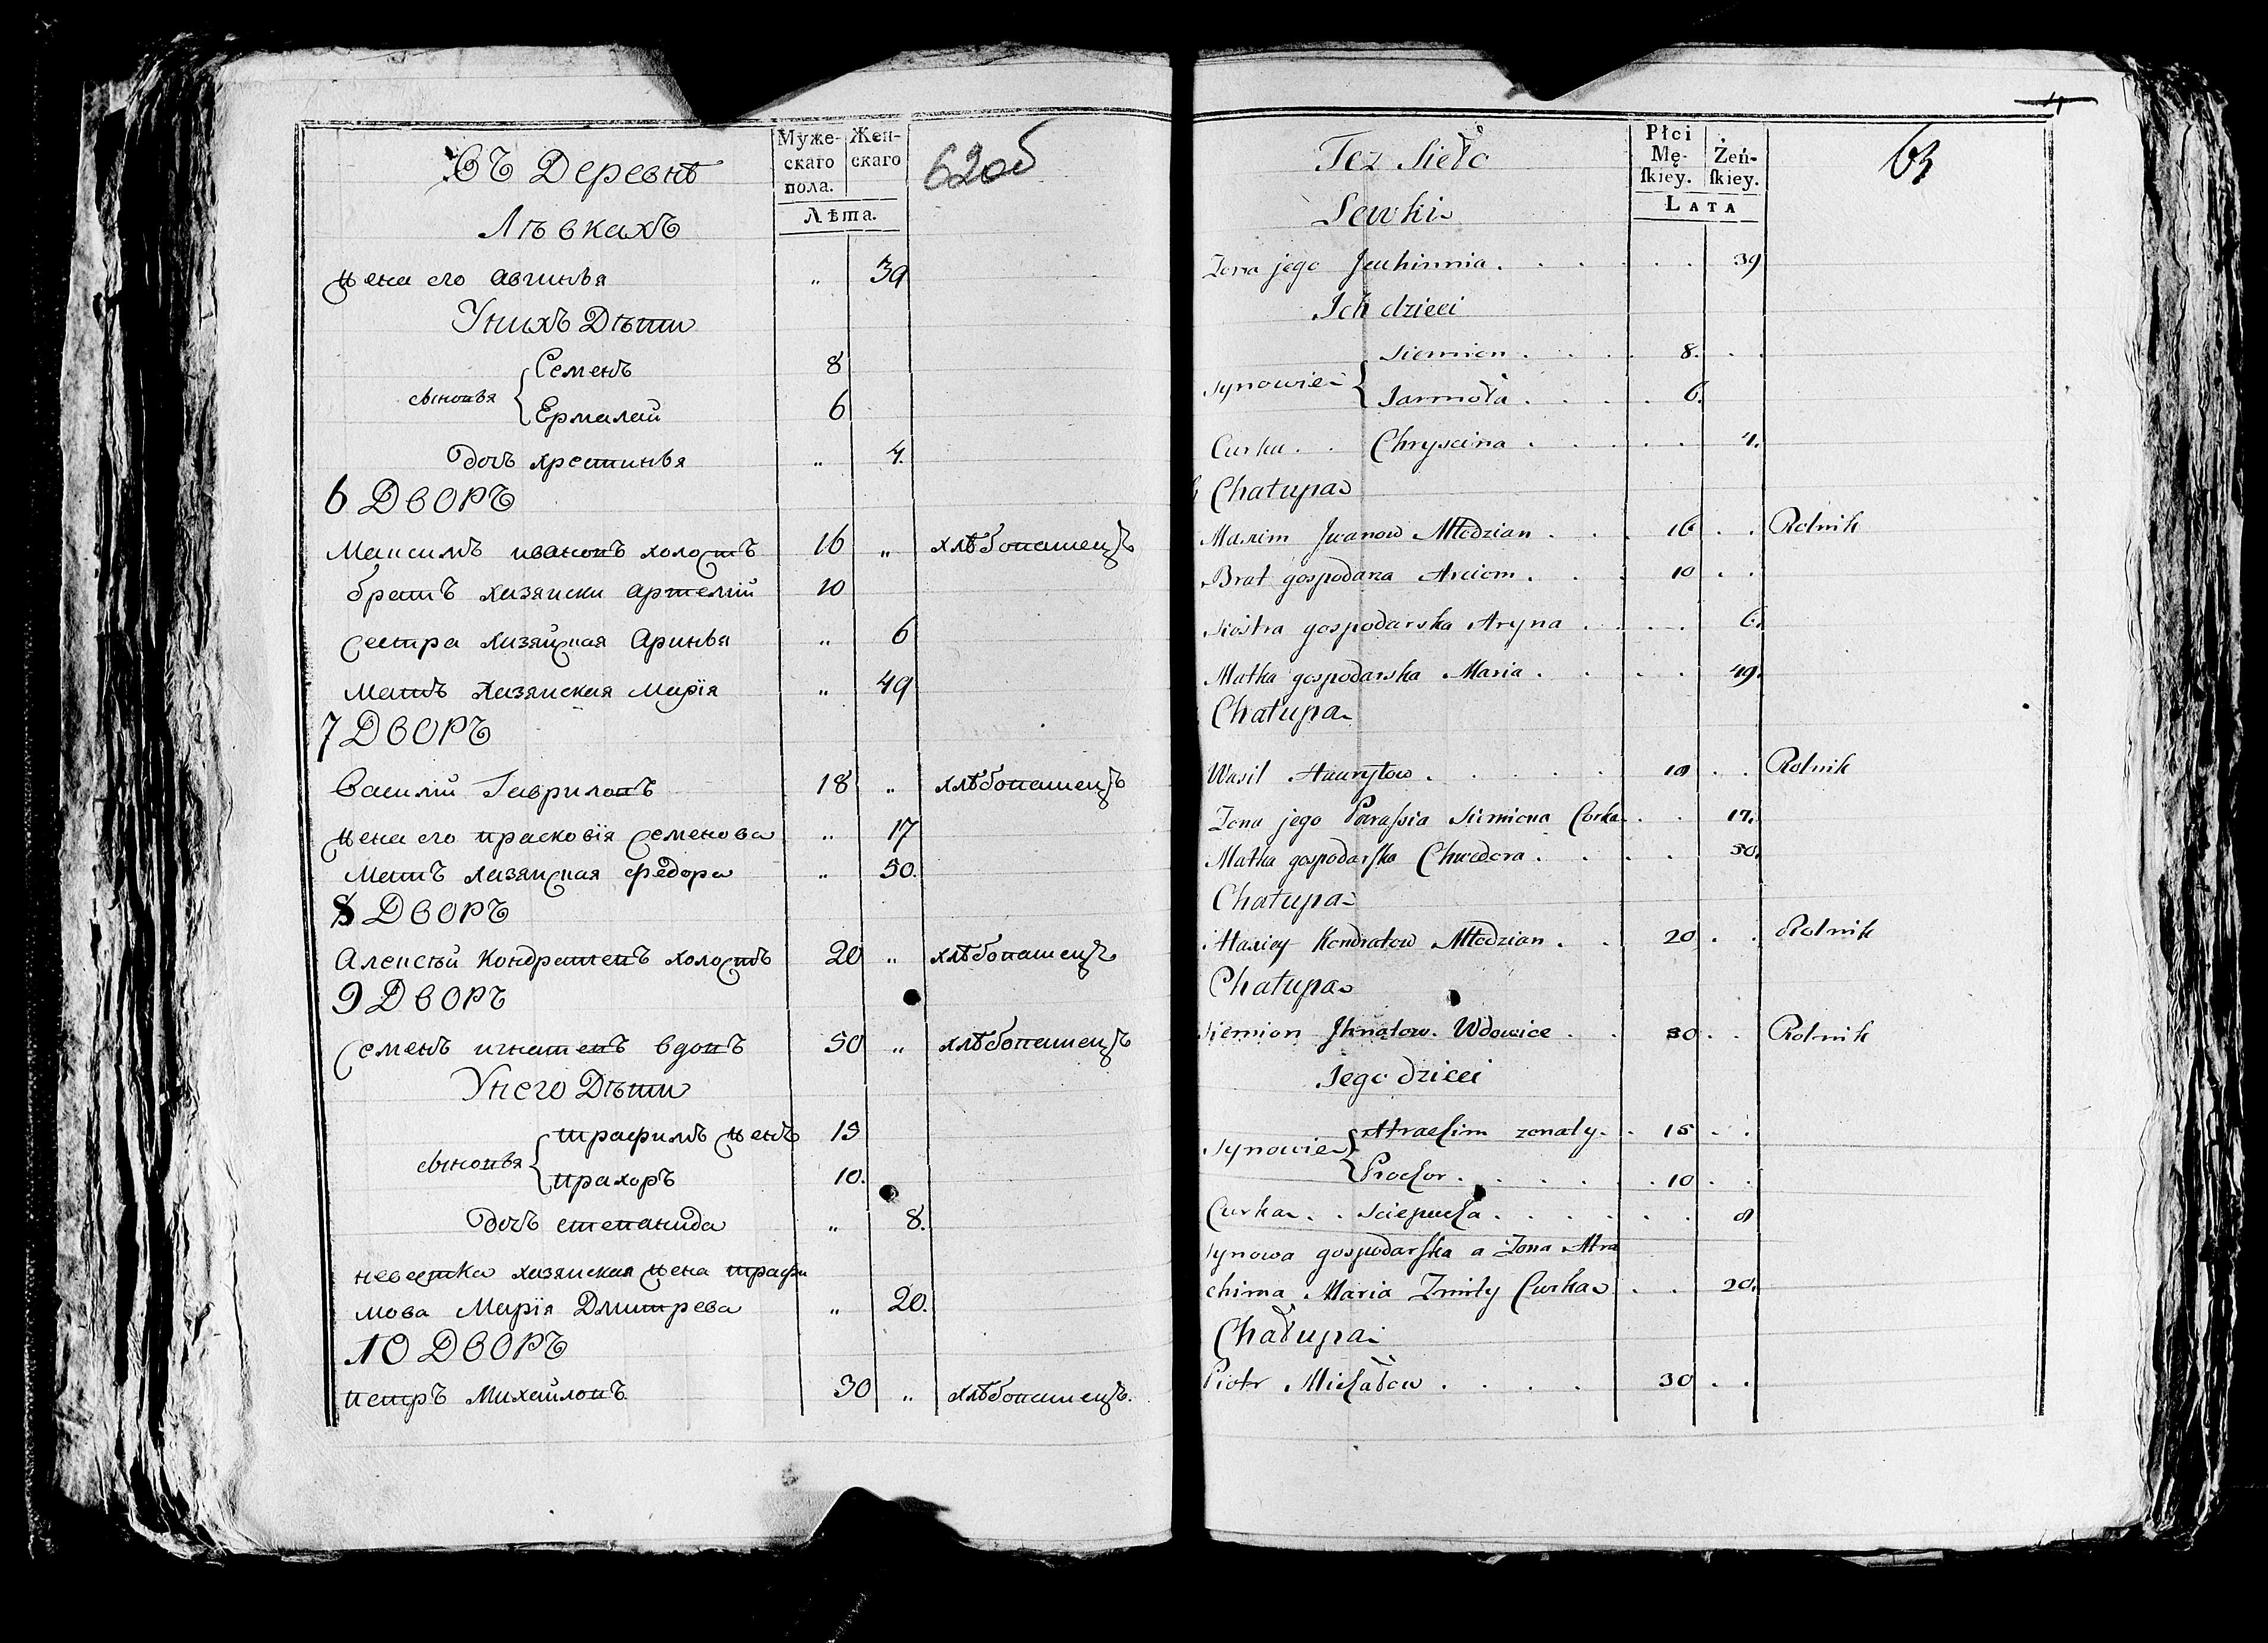 Муже-
скаго
пола.
Жен-
скаго
Лѣта.
62об
Въ Деревнѣ
Лѣвкахъ
жена его Авгинья „ 39
Унихъ Дѣти
сыновья { Семенъ 8
Ермалай 6
дочъ хрестинья „ 4.
6 ДВОРЪ
Максимъ ивановъ холостъ 16 „ хлѣбопашецъ
братъ хазяиски Артемій 10
сестра хазяйская Аринья „ 6
мать хазяиская Марія „ 49
7 ДВОРЪ
Василій Гавриловъ 18 „ хлѣбопашецъ
жена его прасковія семенова „ 17
мать хазяиская федора „ 50.
8 ДВОРЪ
Алексѣй Кондратевъ холостъ 20 „ хлѣбопашецъ
9 ДВОРЪ
семенъ игнатевъ вдовъ 50 „ хлѣбопашецъ
Унего Дѣти
сыновья { трафимъ жень 15
прахоръ 10.
дочъ степанида „ 8.
невестка хазяиская жена трафи
мова Марія Дмитрева „ 20.
10 ДВОРЪ
петръ Михайловъ 30 „ хлѣбопашецъ.
Płci
Mę-
ſkiey.
Żeń-
ſkiey.
LATA
63
Tez Sieło
Lewki
Zona jego Jeuhinnia . . . . . . 39
Ich dzieci
Synowie { Siemion . . . . 8. . .
Jarmoła . . . . 6.
Curka . . Chryscina . . . . . 4.
6 Chałupa
Maxim Jwanow Młodzian . . . 16 . . Rolnik
Brat gospodara Arciom . . . 10 . .
Siostra gospodarska Aryna . . . . 6.
Matka gospodarska Maria . . . . 49.
Chałupa
Wasil Hauryłow . . . . . 18 . . Rolnik
Zona jego Paraſsia Siemiona Corka . . 17.
Matka gospodarſka Chwedora . . . . 50.
Chałupa
Alaxiey Kondratow Młodzian . . 20 . . Rolnik
Chałupa
Siemion Jhnatow Wdowiec . . 50 . . Rolnik
Jego dzieci
Synowie { Atrachim zonaty . . 15 . .
Prochor . . . . . . 10 . .
Curka . . Sciepucha . . . . . . 8
Synowa gospodarſka a Zona Atra
chima Maria Zmitry Curka . . 20.
Chałupa
Piotr Michałow . . . . 30 . .